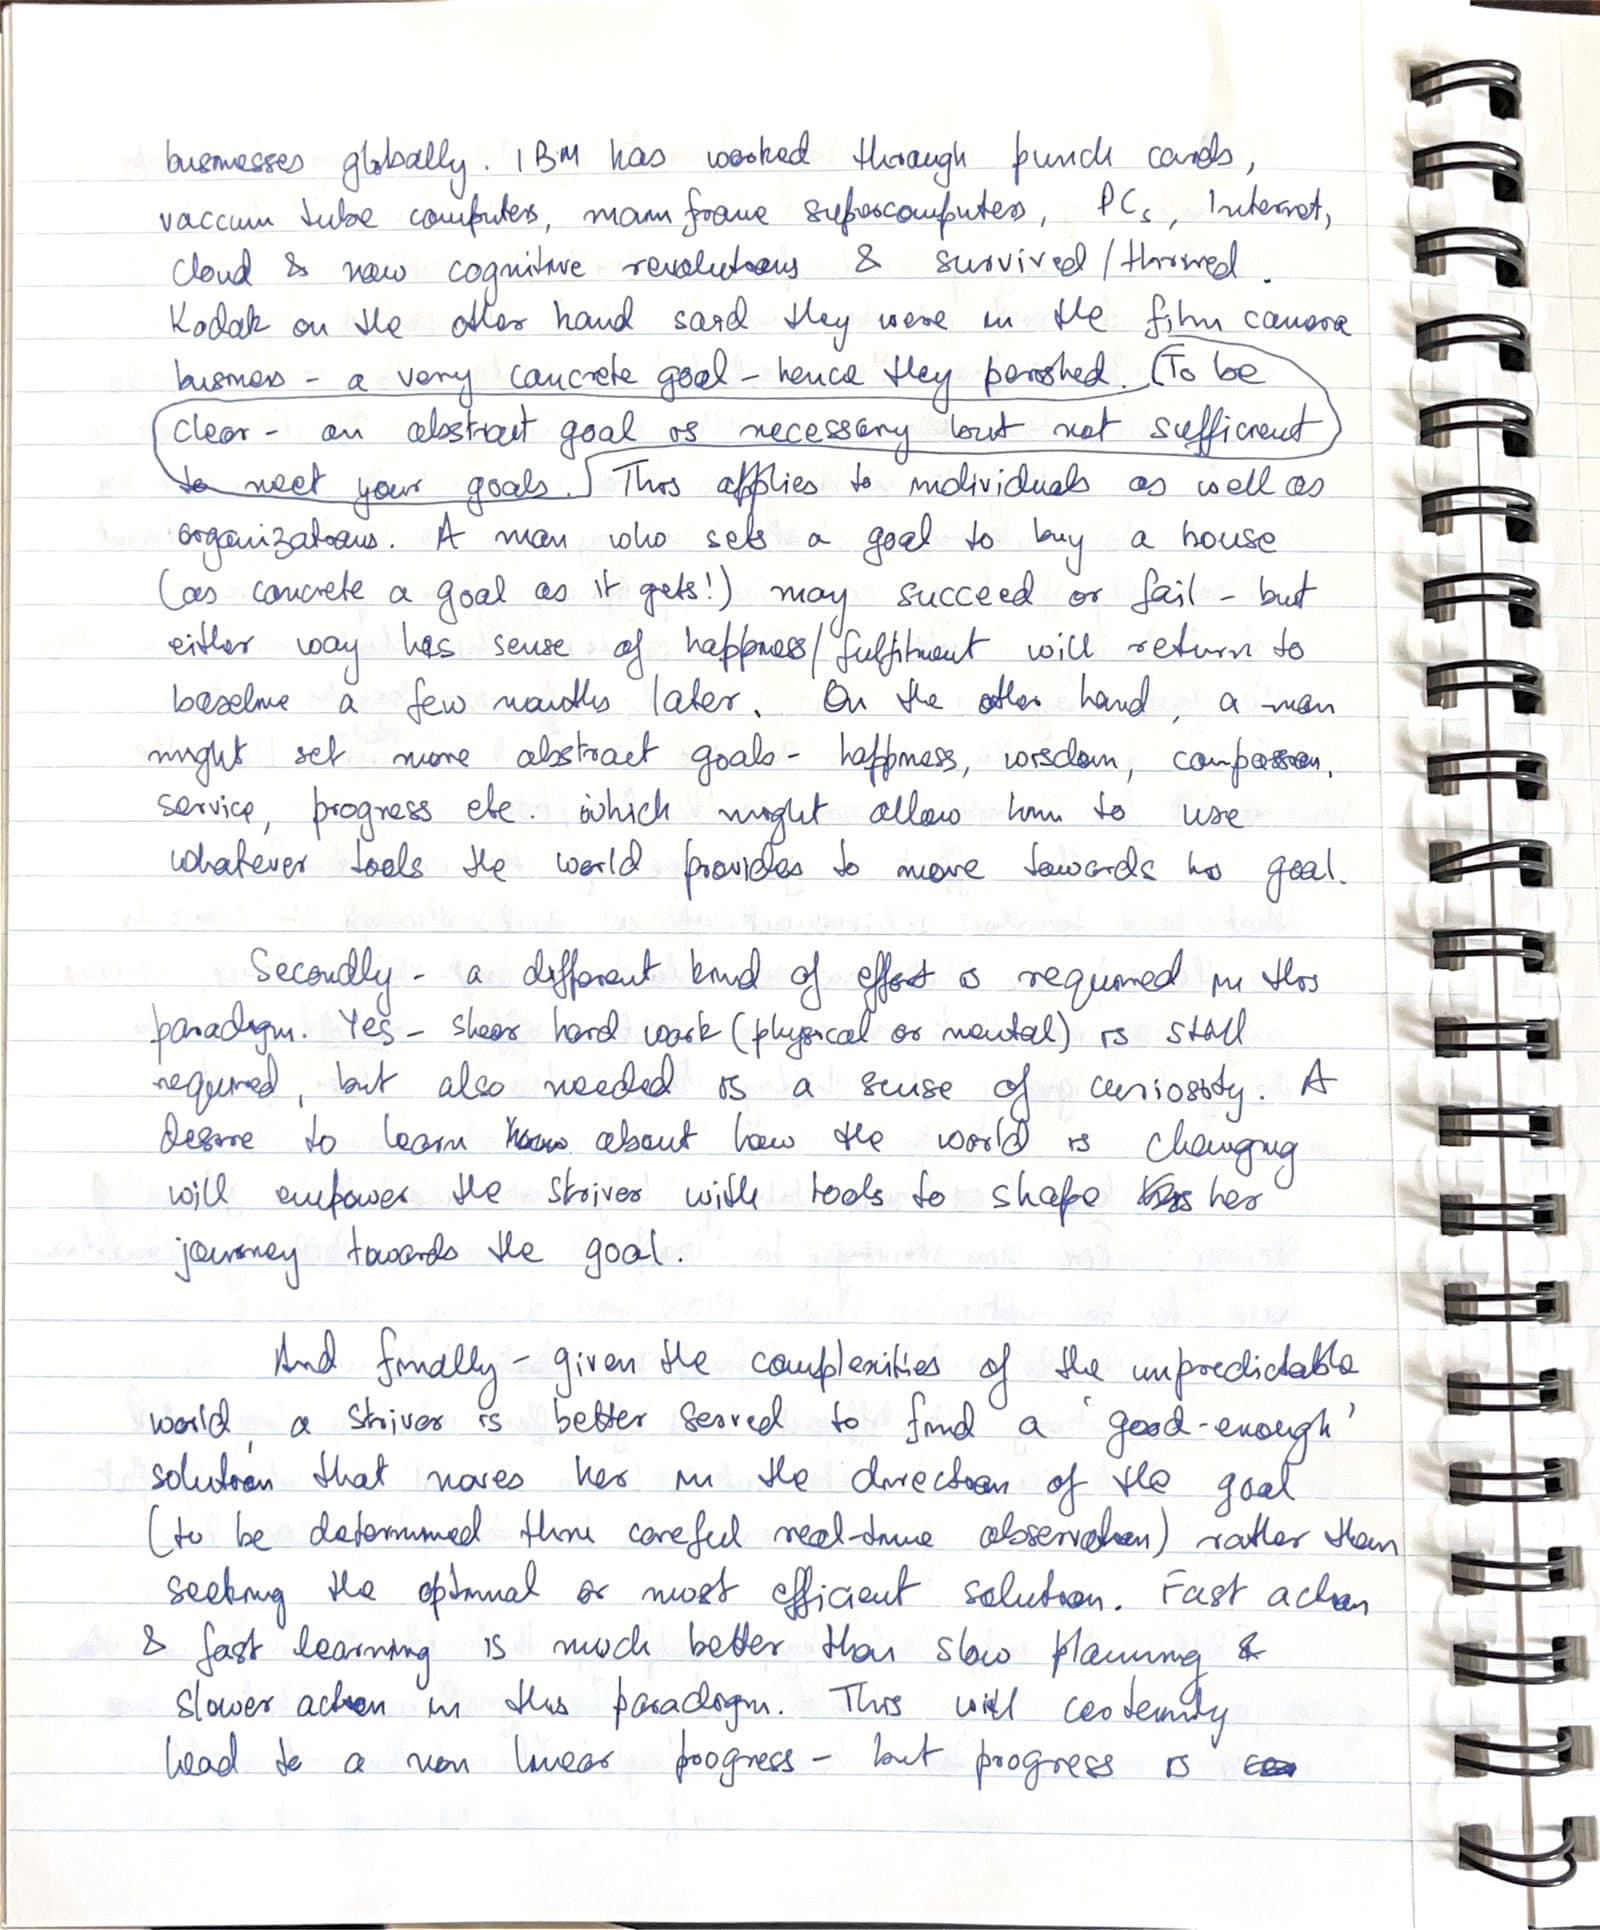 businesses globally. IBM has worked through punch cards,
vaccum tube computers, mainframe supercomputers, PCs, Internet,
cloud & now cognitive revolutions & survived/thrived.
Kodak on the other hand said they were in the film camera
business - a very concrete goal - hence they perished. (To be
clear - an abstract goal is necessary but not sufficient
to meet your goals.) This applies to individuals as well as
organizations. A man who sets a goal to buy a house
(as concrete a goal as it gets!) may succeed or fail - but
either way his sense of happiness/fulfilment will return to
baseline a few months later. On the other hand, a man
might set more abstract goals - happiness, wisdom, compassion,
service, progress etc. which might allow him to use
whatever tools the world provides to move towards his goal.
Secondly - a different kind of effort is required in this
paradigm. Yes - sheer hard work (physical or mental) is still
required, but also needed is a sense of curiosity. A
desire to learn about how the world is changing
will empower the striver with tools to shape her
journey towards the goal.
And finally - given the complexities of the unpredictable
world, a striver is better served to find a 'good-enough'
solution that moves her in the direction of the goal
(to be determined thru careful real-time observation) rather than
seeking the optimal or most efficient solution. Fast action
& fast learning is much better than slow planning &
slower action in this paradigm. This will certainly
lead to a non linear progress - but progress is